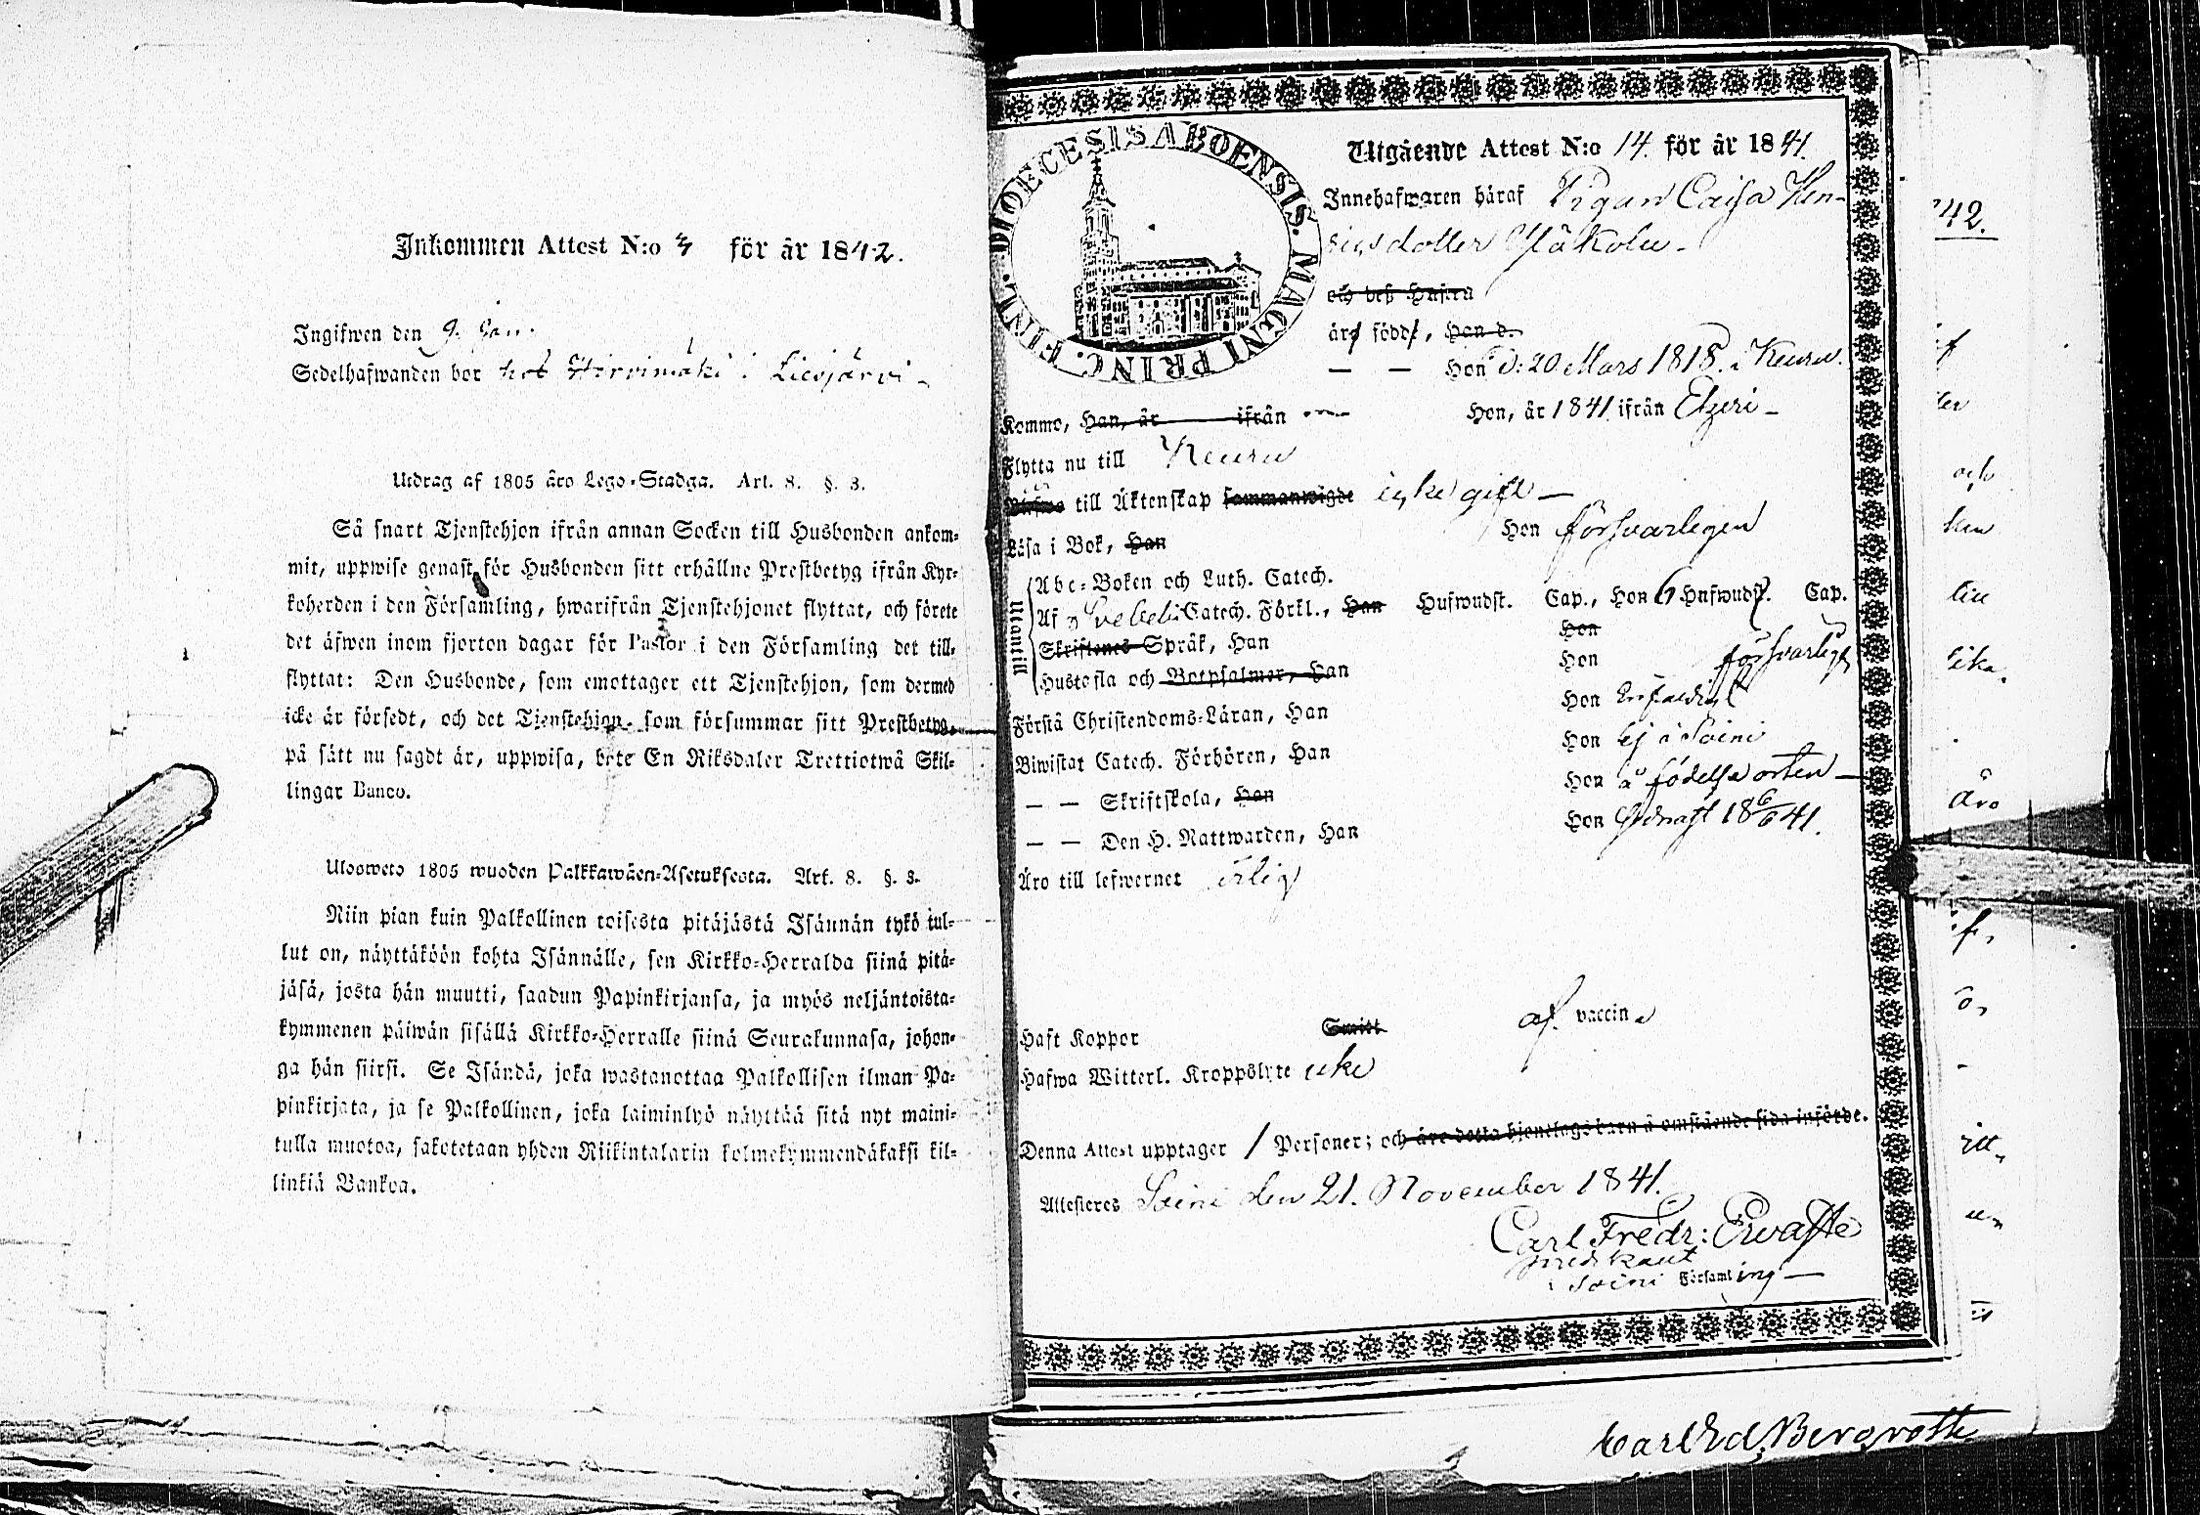 Inkommen Attest N:o 3 för år 1842.
Ingifwen den 9. Jan.
Sedelhafwanden bor hos Hirvimäki i Liesjärvi
Utdrag af 1805 års Lego-Stadga. Art. 8. §. 3.
Så snart Tjenstehjon ifrån annan Socken till Husbonden ankom-
mit, uppwise genast för Husbonden sitt erhållne Prestbetyg ifrån Kyr-
koherden i den Församling, hwarifrån Tjenstehjonet flyttat, och förete
det äfwen inom fjorton dagar för Pastor i den Församling det till-
flyttat: Den Husbonde, som emottager ett Tjenstehjon, som dermed
icke är försedt, och det Tjenstehjon, som försummar sitt Prestbetyg,
på sätt nu sagdt är, uppwisa, böte En Riksdaler Trettiotwå Skil-
lingar Banco.
Ulosweto 1805 wuoden Palkkawäen-Asetuksesta. Art. 8. §. 3.
Niin pian kuin Palkollinen toisesta pitäjästä Isännän tykö tul-
lut on, näyttäköön kohta Isännälle, sen Kirkko-Herralda siinä pitä-
jäsä, josta hän muutti, saadun Papinkirjansa, ja myös neljäntoista-
kymmenen päiwän sisällä Kirkko-Herralle siinä Seurakunnasa, johon-
ga hän siirsi. Se Isändä, joka wastanottaa Palkollisen ilman Pa-
pinkirjata, ja se Palkollinen, joka laiminlyö näyttää sitä nyt maini-
tulla muotoa, sakotetaan yhden Riikintalarin kolmekymmendäkaksi kil-
linkiä Bankoa.
DIOECESIS ABOENSIS. MAGNI PRINC. FINL.
Utgående Attest N:o 14. för år 1841.
Innehafwaren häraf Pigan Caisa Hen-
ricsdotter
och deß Hustru
äro födde, Han d.
— — Hon d: 20 Mars 1818. i Keuru.
Kommo, Han, år ifrån Hon, år 1841 ifrån Etzeri
Flytta nu till Keuru
till Äktenskap sammanwigde icke gift
Läsa i Bok, Han Hon försvarligen
Utantill
Abc-Boken och Luth. Catech.
Af Svebeli Catech. Förkl., Han Hufwudst. Cap., Hon 6 Hufwudst. Cap.
Skriftenes Språk, Han Hon
Hustafla och Botpsalmer, Han Hon försvarligt
Förstå Christendoms-Läran, Han Hon enfaldigt
Biwistat Catech. Förhören, Han Hon ej i Soini
— — Skriftskola, Han Hon å födelse orten
— — Den H. Nattwarden, Han Hon sednast 18 6/6 41.
Äro till lefwernet ärlig
Haft Koppor Smitt af vaccin
Hafwa Witterl. Kroppslyte icke
Denna Attest upptager 1 Personer; och äro detta hjonelags barn å omstående sida införde.
Attesteres Soini den 21. November 1841.
Carl Fredr: Ervaste
predikant
i Soini Församling
42.
och
Äro
Carl Ed. Bergroth